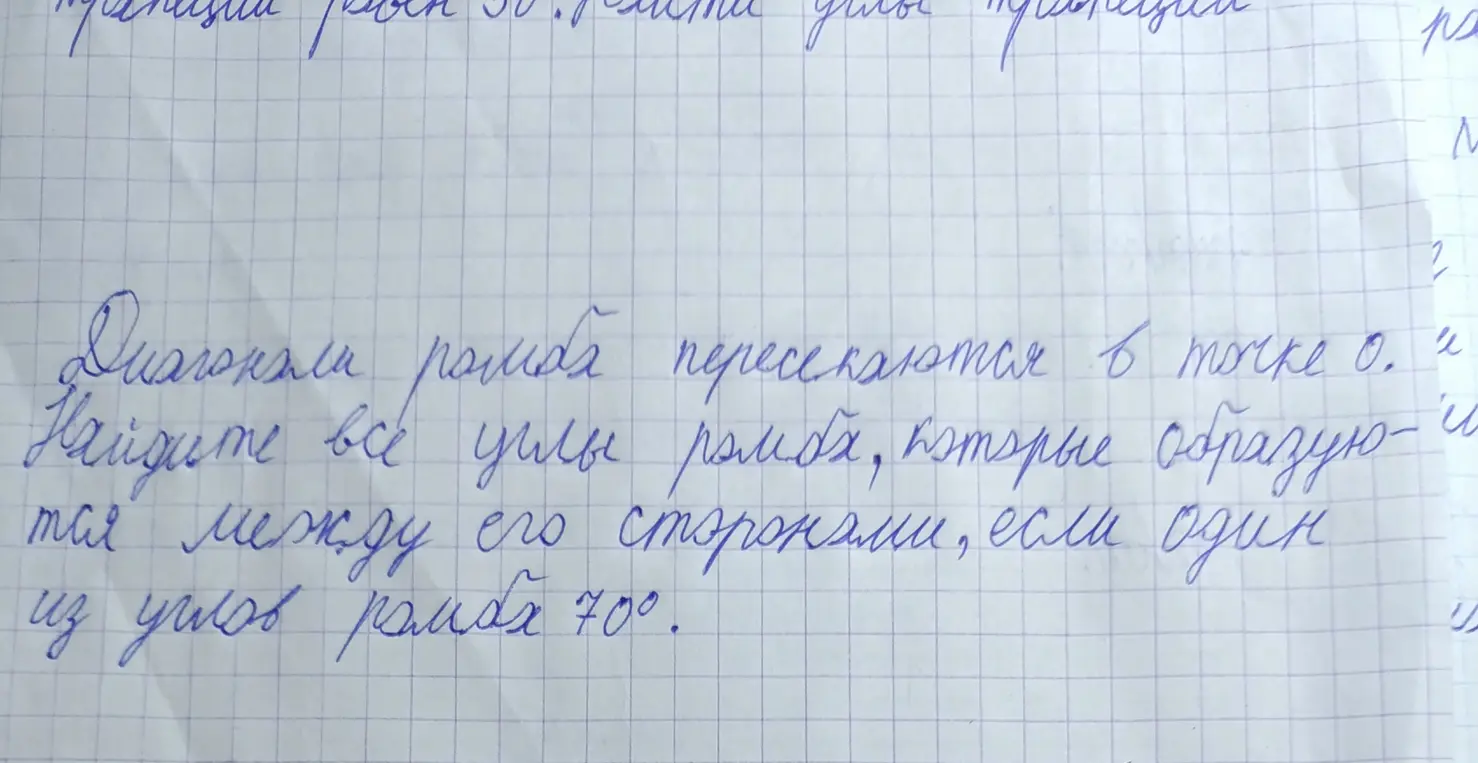 трапеции равен 30°. Найти углы трапеции
Диагонали ромба пересекаются в точке О.
Найдите все углы ромба, которые образую-
тся между его сторонами, если один
из углов ромба 70°.